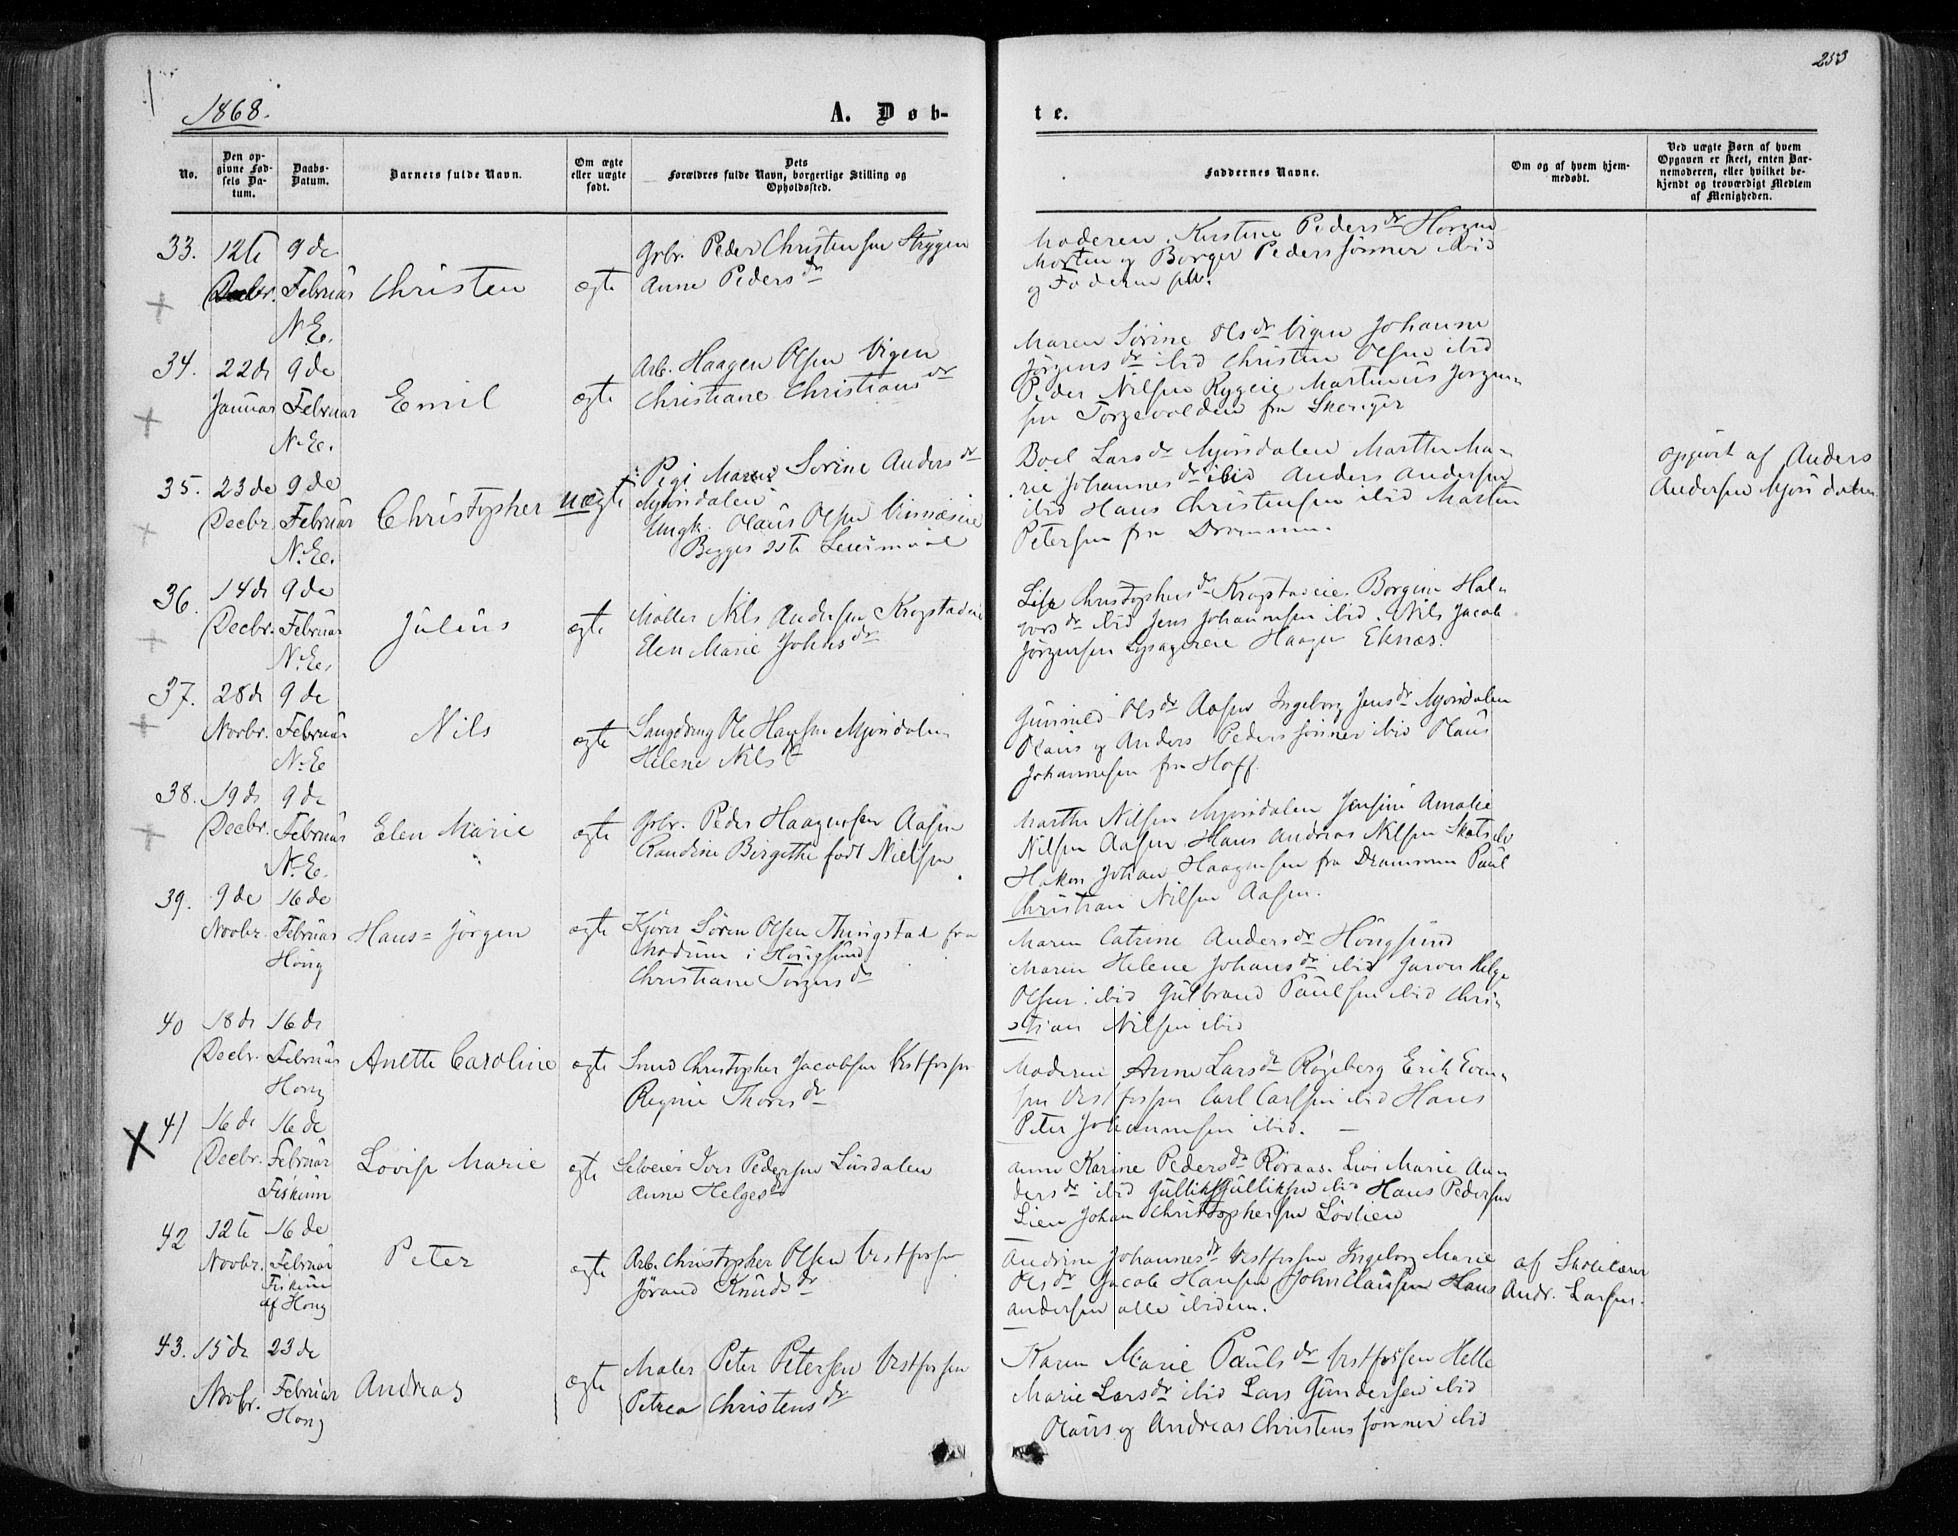 253
1868.
A. Døb-
te.
No.
Den op-
givne Fød-
sels Da-
tum.
Daabs-
Datum.
Barnets fulde Navn.
Om ægte
eller uægte
født.
Dets
Forældres fulde Navn, borgerlige Stilling og
Opholdssted.
Faddernes Navne.
Om og af hvem hjem-
medøbt.
Ved uægte Børn af hvem
Opgaven er skeet, enten Bar-
nemoderen, eller hvilket be-
kjendt og troværdigt Medlem
af Menigheden.
33. 12te 9de
Decbr. Februar
N.Ee.
Christen
ægte
Grbr. Peder Christensen Strygen
Anne Pedersdr
Moderen. Kirstine Pedersdr
Morten og Borger Pederssønner ibid
og Faderen selv.
34. 22de 9de
Januar Februar
N.Ee.
Emil
ægte
Arb. Haagen Olsen Vigen
Christiane Christiansdr
Maren Sørine Olsdr Vigen Johanne
Jørgensdr ibid Christen Olsen ibid
Peder Nilsen Rygeie Martinius Jørgen-
sen Torgevolden fra
35. 23de 9de
Decbr. Februar
N.Ee.
Christopher
uægte
Pige Maren Sørine Andersdr
Mjøndalen
Ungk. Olaus Olsen
Begges 2det Leiermaal
Boel Larsdr Mjøndalen Marthe Ma-
rie Johannesdr ibid Anders Andersen
ibid Hans Christensen ibid Morten
Petersen fra Drammen.
opgivet af Anders
Andersen Mjøndalen
36. 14de 9de
Decbr. Februar
N.Ee.
Julius
ægte
Møller Nils Andersen Krogstadeie
Elen Marie Johnsdr
Lise Christophersdr Krogstadeie. Borgine Hal-
vorsdr ibid Jens Johannesen ibid. Nils Jacob
Jørgensen Haagen Eknæs.
37. 28de 9de
Novbr. Februar
N.Ee
Nils
ægte
Saugdreng Ole Hansen Mjøndalen
Helene Nilsdr
Gunnild Olsdr Aasen Ingeborg Jensdr Mjøndalen
Olaus og Anders Pederssønner ibid Olaus
Johannesen fra Hoff.
38. 19de 9de
Decbr. Februar
N.Ee.
Elen Marie
ægte
Grbr. Peder Haagensen Aasen
Randine Birgithe født Nielsen
Marthe Nilsen Mjøndalen Jensine Amalie
Nilsen Aasen. Hans Andreas Nilsen
Hakon Johan Haagensen fra Drammen Paul
Christian Nilsen Aasen.
39. 9de 16de
Novbr. Februar
Houg
Hans Jørgen
ægte
Kjører Søren Olsen Thingstad fra
Modum i Hougsund
Christiane Torgersdr
Maren Catrine Andersdr Hougsund
Maren Helene Johansdr ibid Garver Helge
Olsen ibid Gulbrand Paulsen ibid Chri-
stian Nilsen ibid
40 18de 16de
Decbr. Februar
Houg
Anette Caroline
ægte
Smed Christopher Jacobsen Vestfossen
Regine Thoresdr
Moderen Anne Larsdr Røgeberg Erik Even-
sen Vestfossen Carl Carlsen ibid Hans
Peter Johannesen ibid.
41 16de 16de
Decbr. Februar
Fiskum
Lovise Marie
ægte
Selveier Iver Pedersen Lursdalen
Anne Helgesdr
Anne Karine Pedersdr Røraas. Livs Marie An-
dersdr ibid Gullik Gulliksen ibid Hans Pedersen
Lien Johan Christophersen Løvlien
42 12te 16de
Novbr. Februar
Fiskum
af Houg
Peter
ægte
Arb. Christopher Olsen Vestfossen
Jørand Knudsdr
Andrine Johannesdr Vestfossen Ingeborg Marie
Olsdr Jacob Hansen John Clausen Hans
Andersen alle ibidem.
af Skolelærer
Andr. Larsen.
43. 15de 23de
Novbr. Februar
Houg
Andreas
ægte
Maler Peter Petersen Vestfossen
Petrea Christensdr
Karen Marie Paulsdr Vestfossen Helle
Marie Larsdr ibid Lars Gundersen ibid
Olaus og Andreas Christenssønner ibid